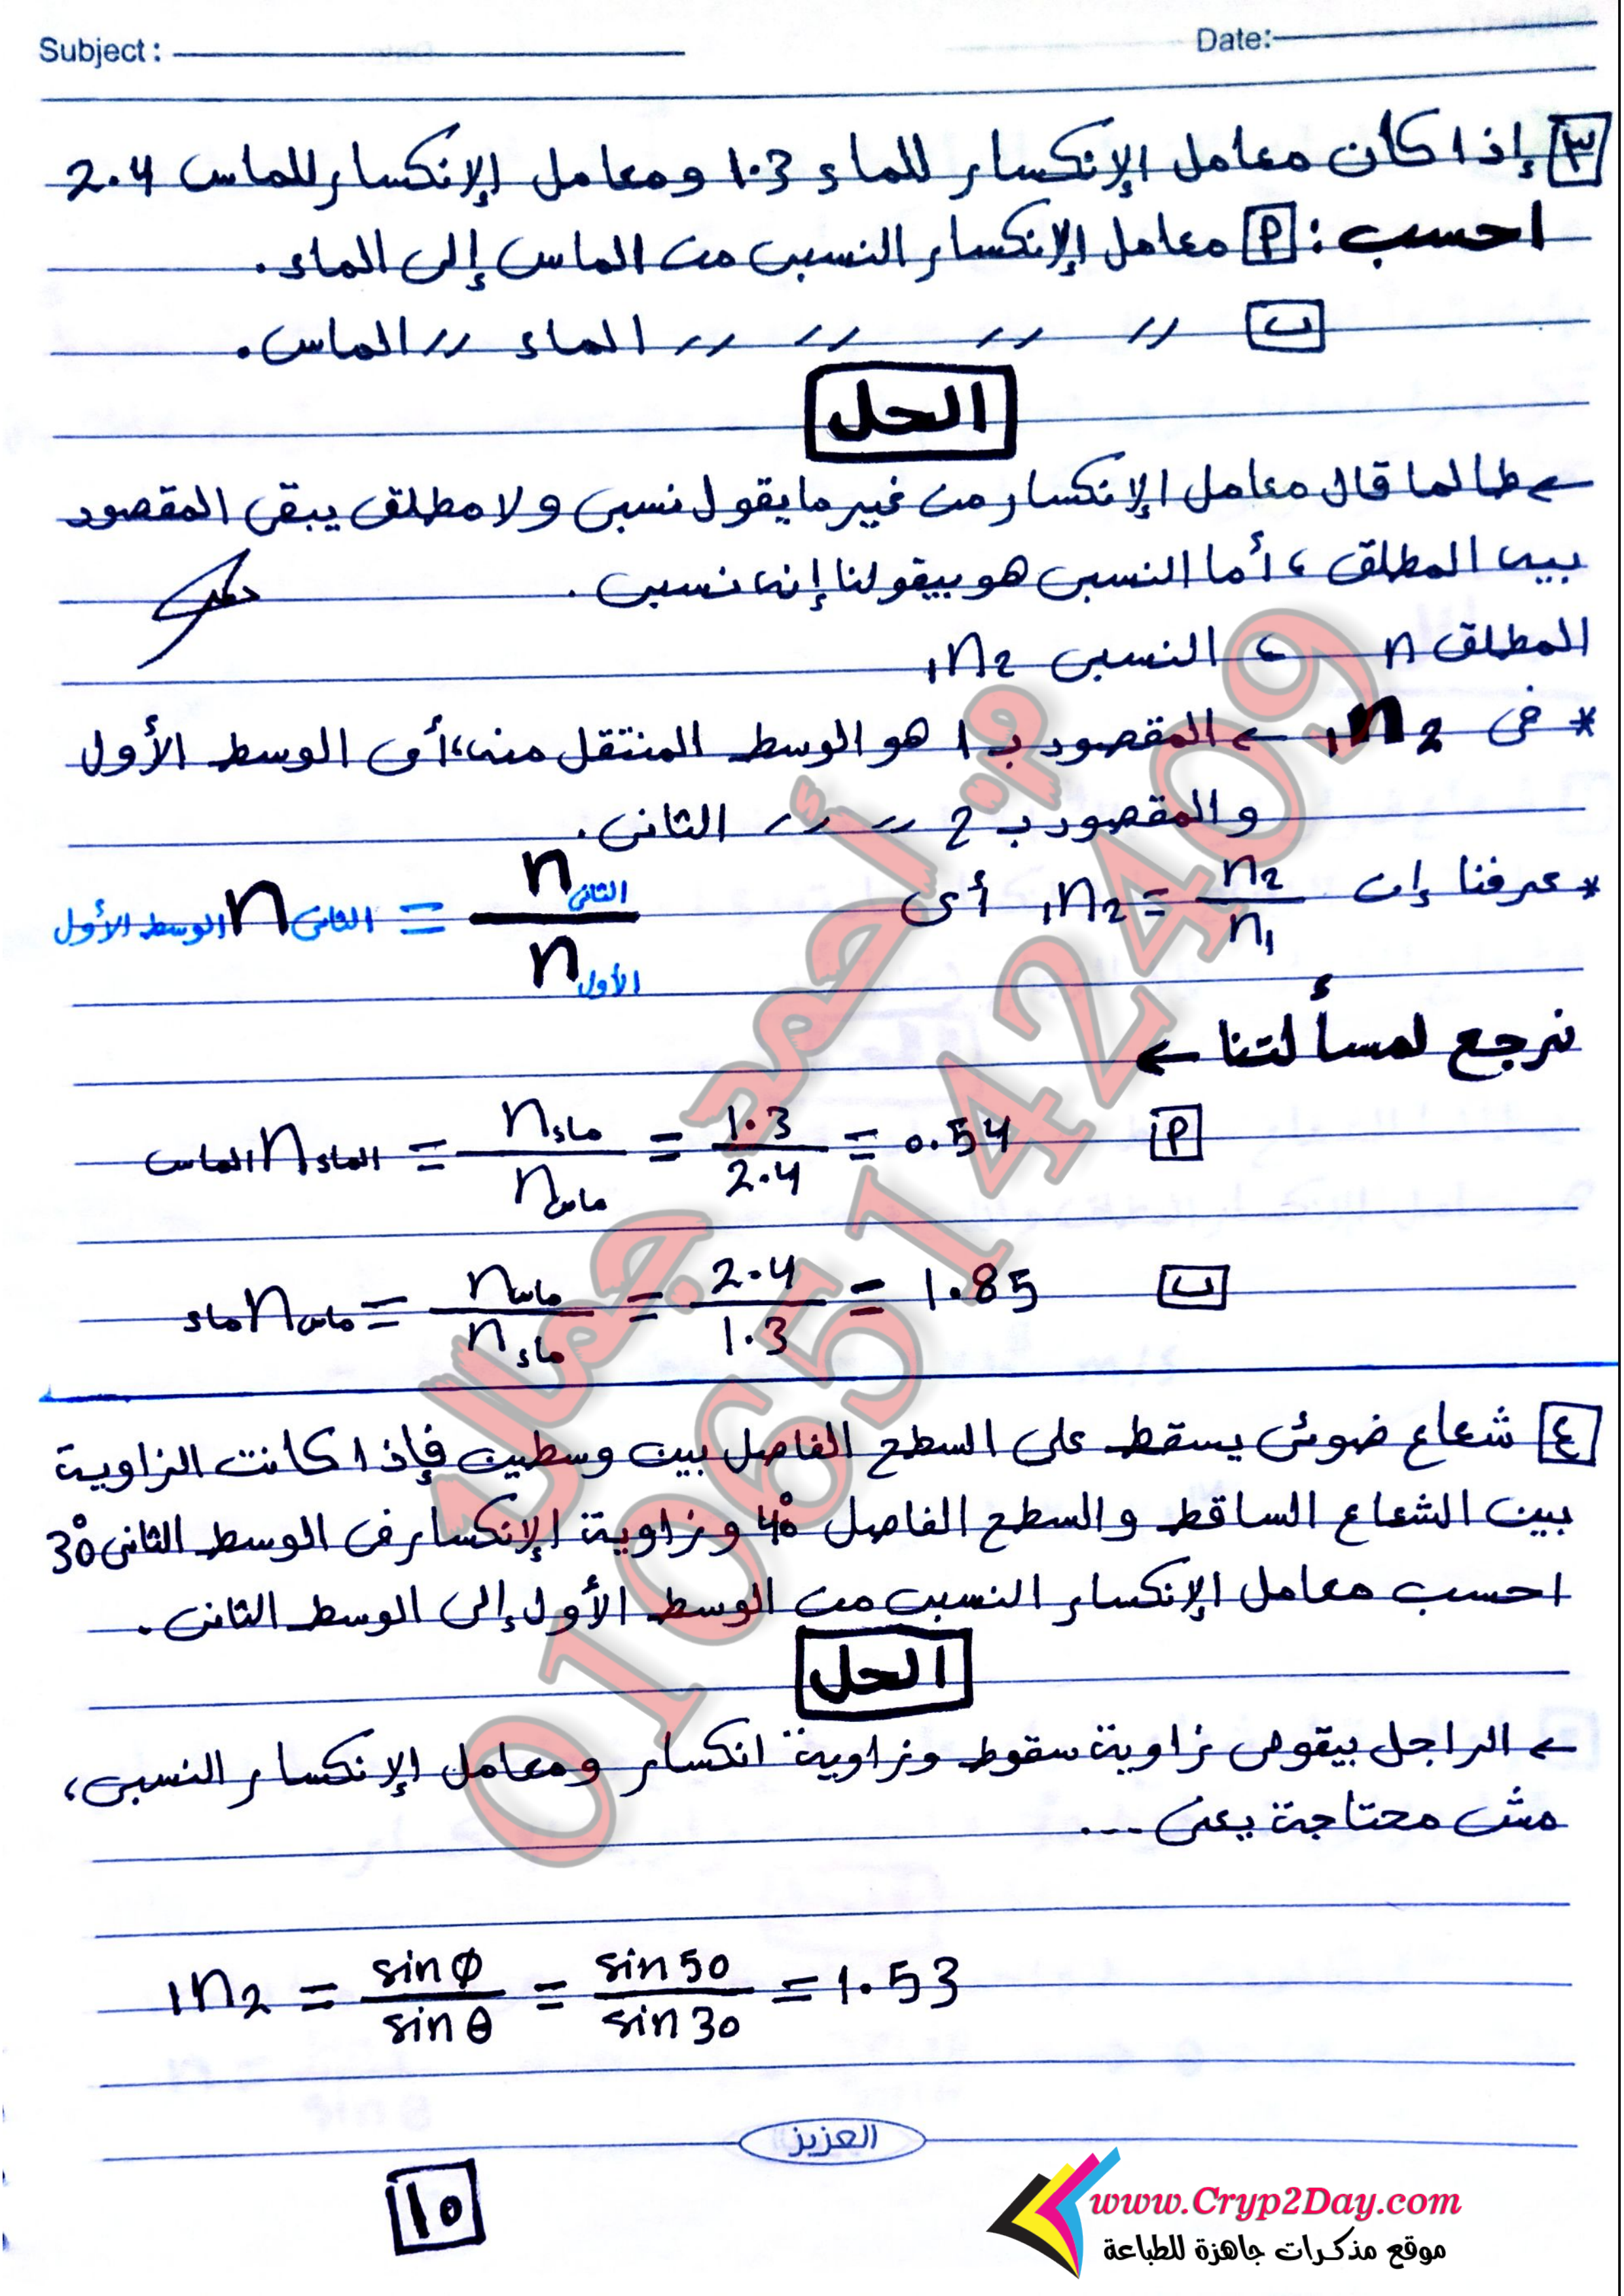 Subject: Date:
٣ إذا كان معامل الإنكسار للماء 1.3 ومعامل الإنكسار للماس 2.4
احسب: أ معامل الإنكسار النسبى من الماس إلى الماء.
ب // // // // الماء // الماس.
الحل
← طالما قال معامل الإنكسار من غير ما يقول نسبى ولا مطلق يبقى المقصود
بيه المطلق، أما النسبى هو بيقولنا إنه نسبى.
المطلق n ، النسبى 1n2
* فى 1n2 ← المقصود بـ 1 هو الوسط المنتقل منه، أى الوسط الأول
والمقصود بـ 2 // // // الثانى.
* عرفنا إن 1n2 = n2 / n1 أى الوسط الأول n الثانى = n الثانى / n الأول
نرجع لمسألتنا ←
أ الماس n الماء = n ماء / n ماس = 1.3 / 2.4 = 0.54
ب ماء n ماس = n ماس / n ماء = 2.4 / 1.3 = 1.85
٤ شعاع ضوئى يسقط على السطح الفاصل بين وسطين فإذا كانت الزاوية
بين الشعاع الساقط والسطح الفاصل 40° وزاوية الإنكسار فى الوسط الثانى 30°
احسب معامل الإنكسار النسبى من الوسط الأول إلى الوسط الثانى.
الحل
← الراجل بيقولى زاوية سقوط وزاوية انكسار ومعامل الإنكسار النسبى،
مش محتاجة يعنى ...
1n2 = sin φ / sin θ = sin 50 / sin 30 = 1.53
العزيز
١٥
www.Cryp2Day.com
موقع مذكرات جاهزة للطباعة
م. أحمد جمال
01065142409